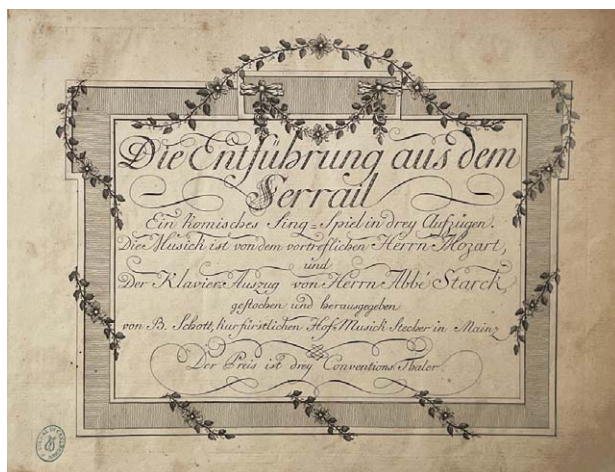 Die Entführung aus dem
Serrail
Ein komisches Sing=Spiel in drey Aufzügen.
Die Musick ist von dem vortreflichen Herrn Mozart,
und
Der Klavier-Auszug von Herrn Abbé Starck
gestochen und herausgegeben
von B. Schott, kurfürstlichen Hof-Musick Stecher in Mainz
Der Preis ist drey Conventions Thaler.